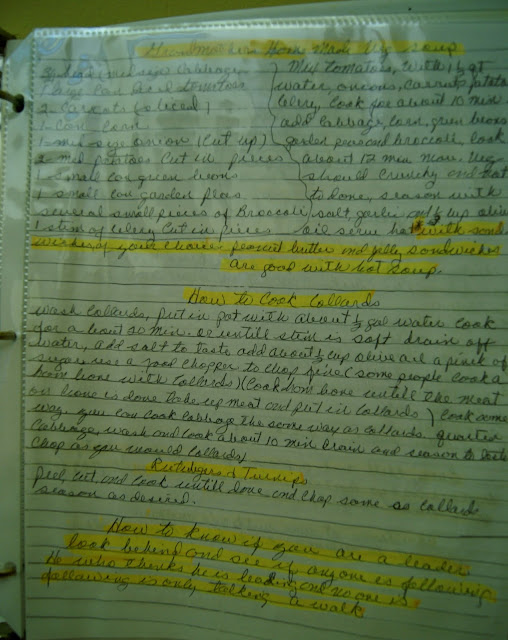 Grandmother's Home Made Veg soup
head med size Cabbage
1 large can tomatoes
2 Carrots (sliced)
1 Can corn
1 med size onion (cut up)
2 med potatoes Cut in pieces
1 small can green beans
1 small can garden peas
several small pieces of Brocoli
1 stem of celery Cut in pieces
Mix tomatoes, with 1/2 gt
water, onions, carrots, potatoes
celery, cook for about 10 min
add cabbage, corn, green beans
garden peas and brocoli, cook
about 12 min more. Veg
should crunchy and not
to done, season with
salt garlic and cup olive
oil serve hot with sand
wiches of your choice peanut butter and jelly sandwiches
are good with hot soup.
How to Cook Collards
wash Collards, put in pot with about 1/2 gal water cook
for about 30 min. or untill stem is soft drain off
water, add salt to taste add about 1/3 cup olive oil a pinch of
sugar use a food chopper to chop fine (some people cook a
ham bone with collards) (Cook ham bone untill the meat
on bone is done take up meat and put in collards) cook same
way. you can cook Cabbage the same way as collards. quarter
Cabbage wash and cook about 10 min drain and season to taste
Chop as you would Collards)
Rutabagers & Turnips
Peel, cut and cook untill done and chop same as collards
season as desired.
How to know if you are a leader
look behind and see if anyone is following
He who thinks he is leading and no one is
following is only taking a walk